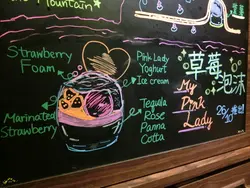 Mountain
Strawberry
Foam
Pink Lady
Yoghurt
Ice cream
Marinated
Strawberry
Tequila
Rose
Panna
Cotta
草莓
泡沫
My
Pink
Lady